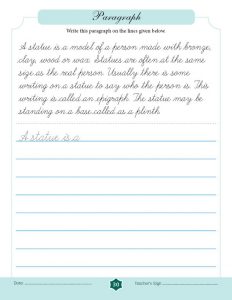 Paragraph
Write this paragraph on the lines given below.
A statue is a model of a person made with bronze,
clay, wood or wax. Statues are often at the same
size as the real person. Usually there is some
writing on a statue to say who the person is. This
writing is called an epigraph. The statue may be
standing on a base called as a plinth.
A statue is a
Date:
30
Teacher's Sign